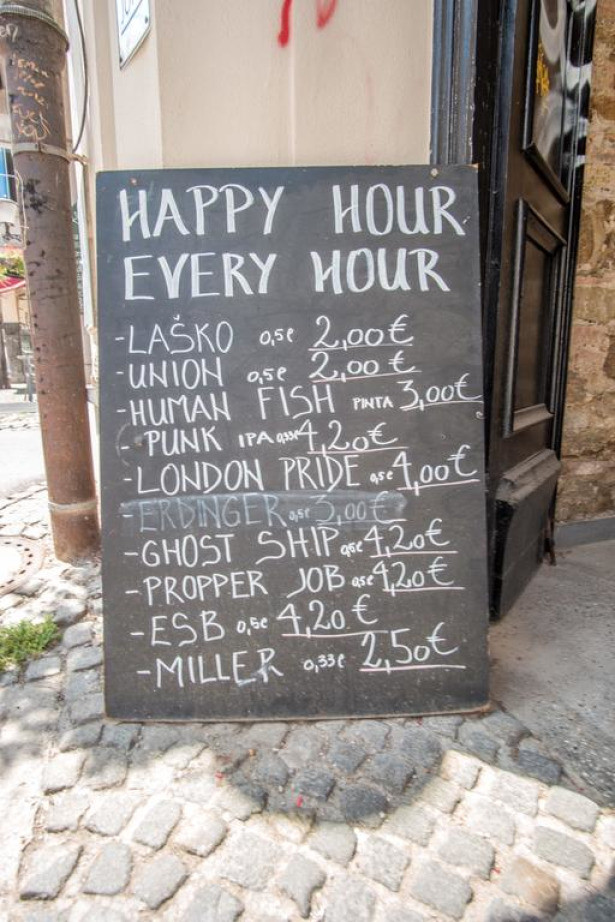 HAPPY HOUR
EVERY HOUR
-LAŠKO 0,5l 2,00€
-UNION 0,5l 2,00€
-HUMAN FISH PINTA 3,00€
- PUNK IPA 0,33l 4,20€
-LONDON PRIDE 0,5l 4,00€
-ERDINGER 0,5l 3,00€
-GHOST SHIP 0,5l 4,20€
-PROPPER JOB 0,5l 4,20€
-ESB 0,5l 4,20€
-MILLER 0,33l 2,50€